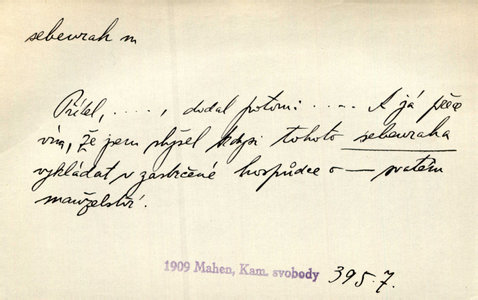 sebevrah m
Přítel, ...., dodal potom: ..... A já přece
vím, že jsem slyšel kdysi tohoto sebevraha
vykládat v zastrčené hospůdce o — svatém
manželství.
1909 Mahen, Kam. svobody 395.7.